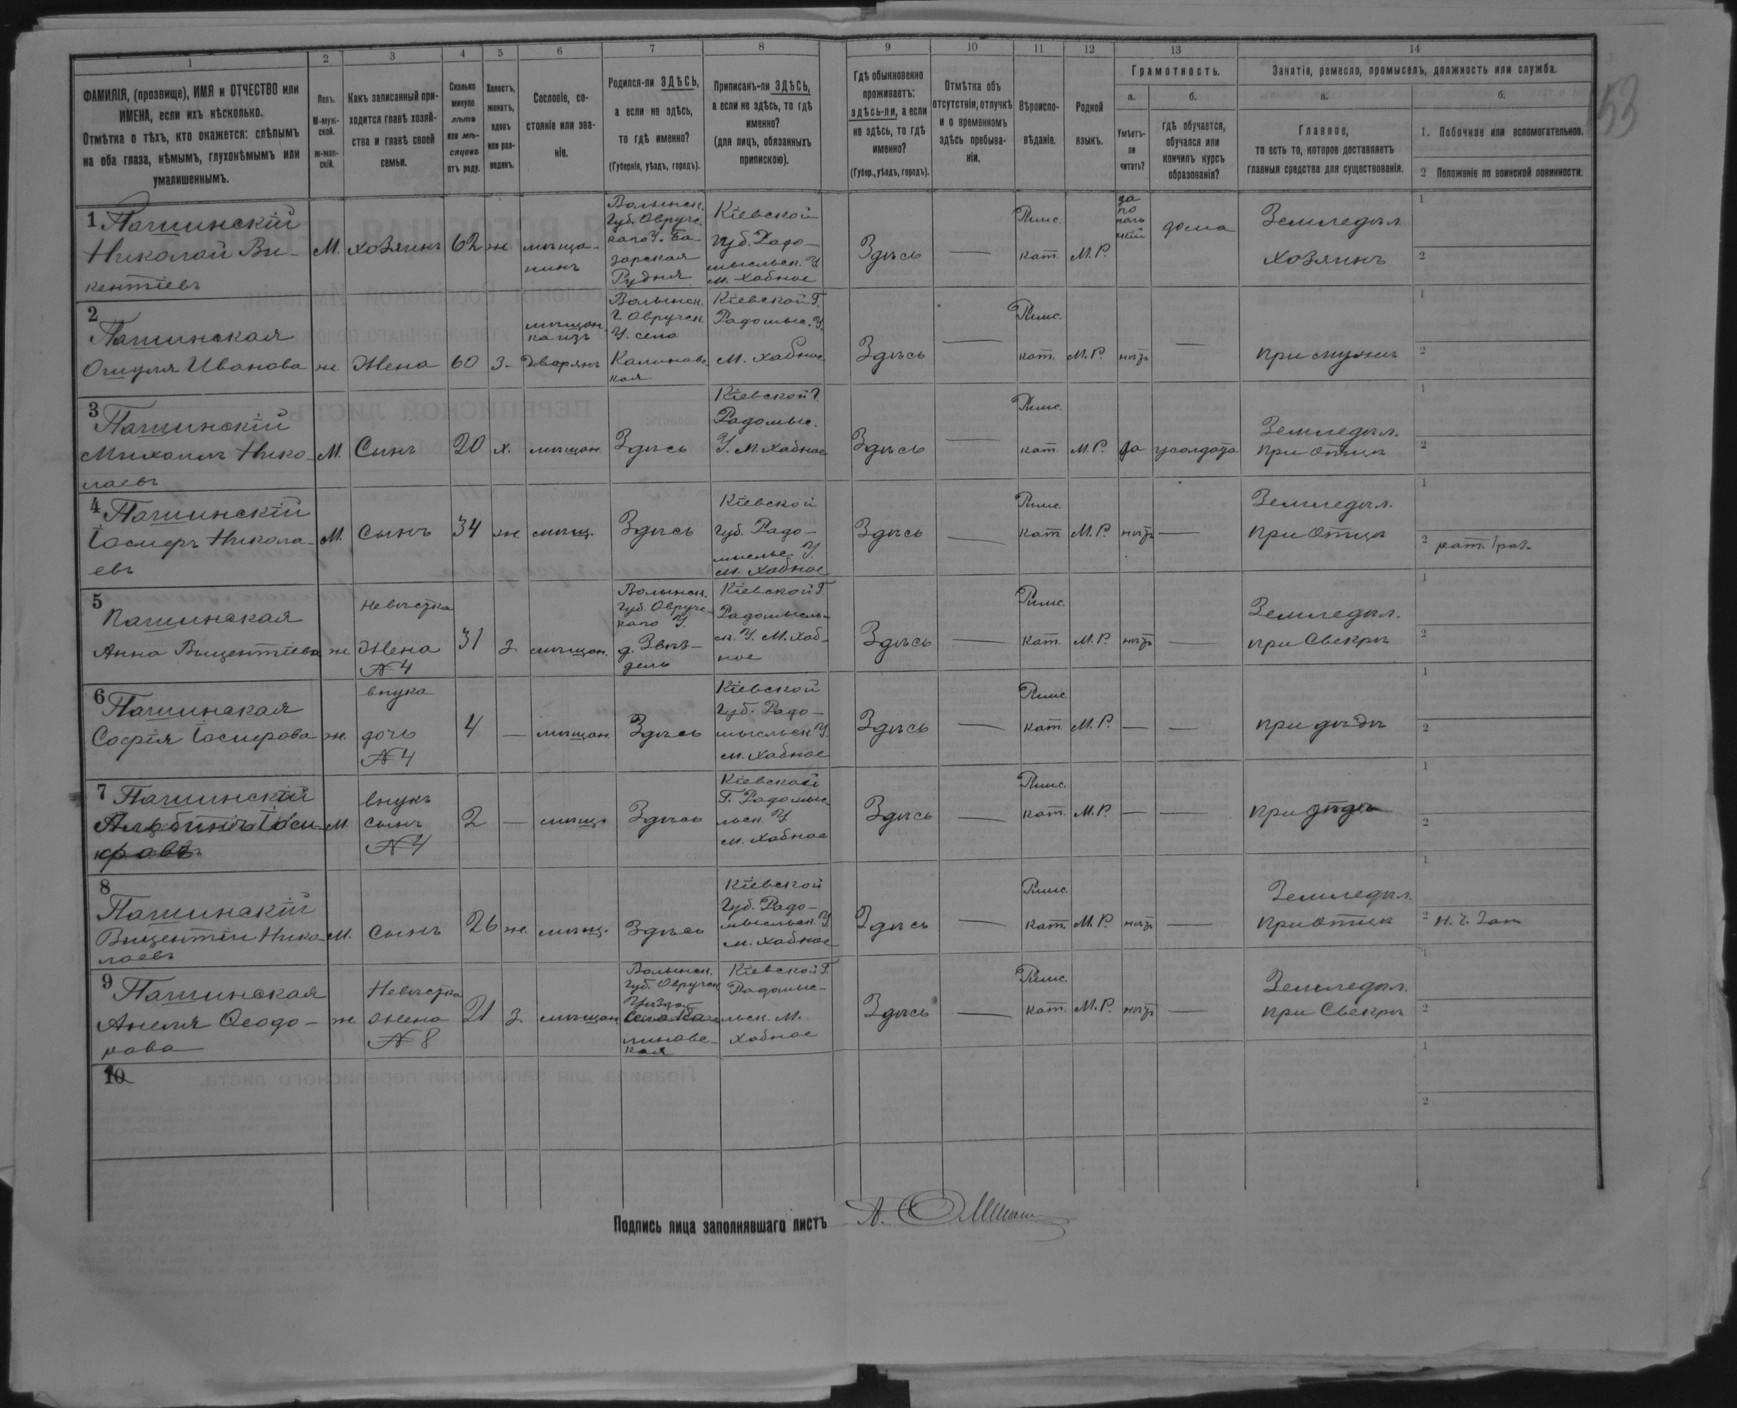 53
1 2 3 4 5 6 7 8 9 10 11 12 13 14
ФАМИЛІЯ, (прозвище), ИМЯ и ОТЧЕСТВО или
ИМЕНА, если ихъ нѣсколько.
Отмѣтка о тѣхъ, кто окажется: слѣпымъ
на оба глаза, нѣмымъ, глухонѣмымъ или
умалишеннымъ.
Полъ.
М-муж-
ской.
ж-жен-
скій.
Какъ записанный при-
ходится главѣ хозяй-
ства и главѣ своей
семьи.
Сколько
минуло
лѣтъ
или мѣ-
сяцевъ
отъ роду.
Холостъ,
женатъ,
вдовъ
или раз-
веденъ.
Сословіе, со-
стояніе или зва-
ніе.
Родился-ли ЗДѢСЬ,
а если не здѣсь,
то гдѣ именно?
(Губернія, уѣздъ, городъ).
Приписанъ-ли ЗДѢСЬ,
а если не здѣсь, то гдѣ
именно?
(для лицъ, обязанныхъ
припискою).
Гдѣ обыкновенно
проживаетъ:
здѣсь-ли, а если
не здѣсь, то гдѣ
именно?
(Губер., уѣздъ, городъ).
Отмѣтка объ
отсутствіи, отлучкѣ
и о временномъ
здѣсь пребыва-
ніи.
Вѣроиспо-
вѣданіе.
Родной
языкъ.
Грамотность.
а.
Умѣетъ-
ли
читать?
б.
гдѣ обучается,
обучался или
кончилъ курсъ
образованія?
Занятіе, ремесло, промыселъ, должность или служба.
а.
Главное,
то есть то, которое доставляетъ
главныя средства для существованія.
б.
1. Побочное или вспомогательное.
2 Положеніе по воинской повинности.
1 Пашинскій
Николай Ви-
кентіевъ
М. хозяинъ 62 ж. мѣща-
нинъ
Волынск.
Губ. Овруч-
каго У.
Рудня
Кіевской
Губ. Радо-
мысльск. У.
м. Хабное
Здѣсь —
Римс.
кат. М.Р.
да
по
поль
скій
дома
Земледѣл.
хозяинъ
1
2
2
Пашинская
Иванова
ж Жена 60 з.
мѣщан.
ка изъ
Дворянъ
Волынск.
Г. Овручск.
У. село
Калиновс
кая
Кіевской Г.
Радомыс. У.
М. Хабное
Здѣсь —
Римс.
кат. М.Р. нѣтъ —
при мужѣ
1
2
3
Пашинскій
Михаилъ Нико-
лаевъ
М. Сынъ 20 х. мѣщан. Здѣсь
Кіевской Г.
Радомыс.
У. М. Хабное
Здѣсь —
Римс.
кат М.Р. да у солдата
Земледѣл.
при отцѣ
1
2
4 Пашинскій
Іосифъ Никола-
евъ
М. Сынъ 34 ж. мѣщ. Здѣсь
Кіевской
Губ. Радо-
мысльс. У.
м. Хабное
Здѣсь —
Римс.
кат М.Р. нѣтъ —
Земледѣл.
при отцѣ
1
2 рат. 1 раз.
5
Пашинская
Анна Вицентіева
ж
Невѣстка
Жена
№ 4
31 з. мѣщан.
Волынск.
Губ. Овруч-
каго У.
д. Звѣз-
даль
Кіевской Г.
Радомысль-
ск. У. М. Хаб-
ное
Здѣсь —
Римс.
кат. М.Р. нѣтъ —
Земледѣл.
при Свекрѣ
1
2
6
Пашинская
Софія Іосифова
ж.
внука
дочь
№ 4
4 — мѣщан. Здѣсь
Кіевской
Губ. Радо-
мысльск. У.
м. Хабное
Здѣсь —
Римс.
кат М.Р. — —
при дѣдѣ
1
2
7 Пашинскій
Альбинъ Іоси-
фовъ
М.
внукъ
сынъ
№ 4
2 — мѣщ. Здѣсь
Кіевской
Г. Радомыс
льск. У.
м. Хабное
Здѣсь —
Римс.
кат. М.Р. — —
при дѣдѣ
1
2
8
Пашинскій
Вицентій Нико
лаевъ
М. Сынъ 26 ж. мѣщ. Здѣсь
Кіевской
Губ. Радо-
мысльск. У.
м. Хабное
Здѣсь —
Римс.
кат М.Р. нѣтъ —
Земледѣл.
При отцѣ
1
2
9
Пашинская
Анеля Ѳеодо-
рова
ж.
Невѣстка
жена
№ 8
21 з. мѣщан
Волынск.
Губ. Овручск
Уѣзда
Село Ка-
линовс-
кая
Кіевской Г.
Радомыс-
льск. М.
Хабное
Здѣсь —
Римс.
кат. М.Р. нѣтъ —
Земледѣл.
при Свекрѣ
1
2
10
1
2
Подпись лица заполнявшаго листъ